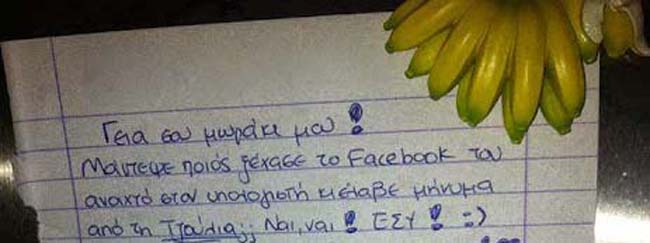 Γεια σου μωράκι μου!
Μάντεψε ποιός ξέχασε το Facebook του
ανοιχτό στον υπολογιστή κι έλαβε μήνυμα
από τη Ναι, ναι! ΕΣΥ! :)